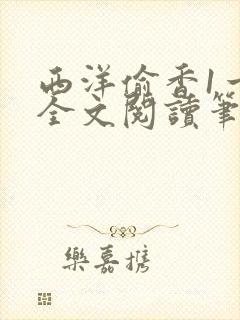 西洋偷香1一
全文閱讀筆
樂嘉攜